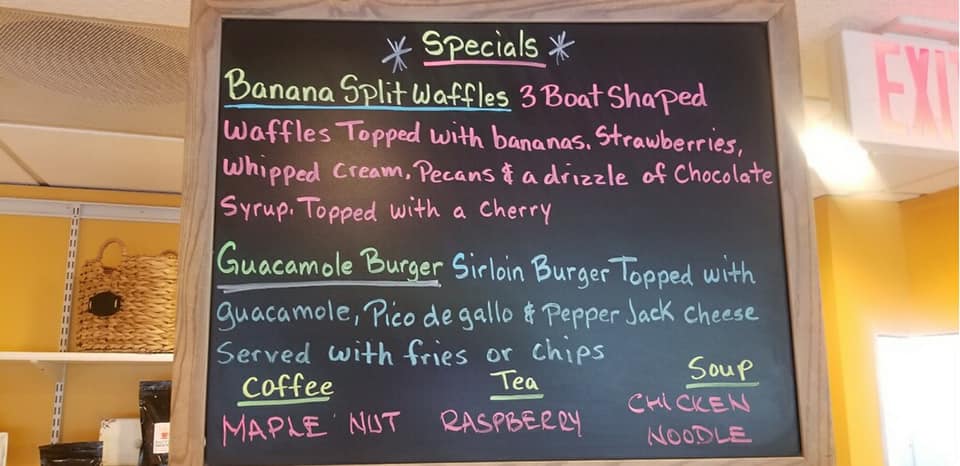 * Specials *
Banana Split Waffles 3 Boat Shaped
Waffles Topped with bananas, Strawberries,
Whipped Cream, Pecans & a drizzle of Chocolate
Syrup. Topped with a Cherry
Guacamole Burger Sirloin Burger Topped with
guacamole, Pico de gallo & Pepper Jack Cheese
Served with fries or Chips
Coffee Tea Soup
MAPLE NUT RASPBERRY CHICKEN
NOODLE
EXI